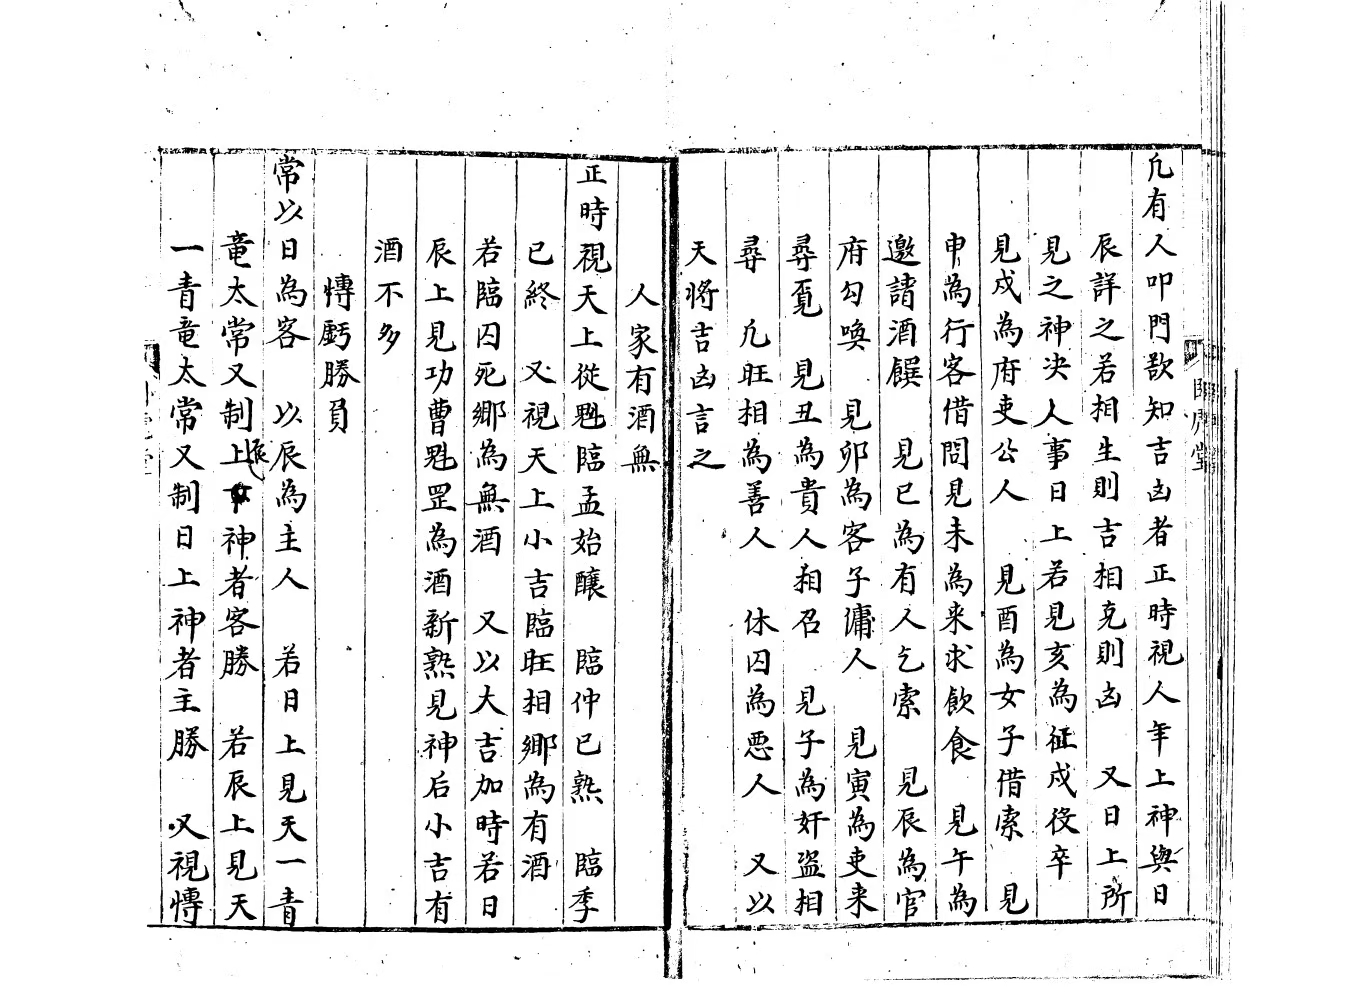 凢有人叩門欲知吉凶者正時視人年上神與日
辰詳之若相生則吉相克則凶　又日上所
見之神决人事日上若見亥為征戍役卒
見戍為府吏公人　見酉為女子借索　見
申為行客借問見未為来求飲食　見午為
邀請酒饌　見巳為有人乞索　見辰為官
府勾喚　見卯為客子傭人　見寅為吏来
尋覔　見丑為貴人相召　見子為奸盗相
尋　凢旺相為善人　休囚為悪人　又以
天將吉凶言之
人家有酒無
正時視天上從魁臨孟始釀　臨仲已熟　臨季
已終　又視天上小吉臨旺相鄉為有酒
若臨囚死鄉為無酒　又以大吉加時若日
辰上見功曹魁罡為酒新熟見神后小吉有
酒不多
愽虧勝負
常以日為客　以辰為主人　若日上見天一青
竜太常又制辰上神者客勝　若辰上見天
一青竜太常又制日上神者主勝　又視愽